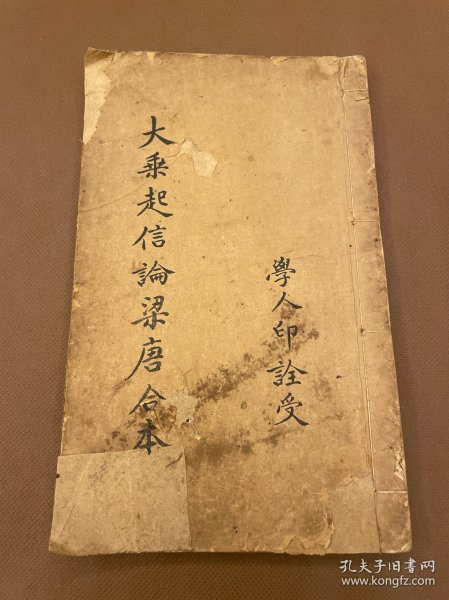 大乘起信論梁唐合本
學人印詮受
孔夫子旧书网
www.kongfz.com